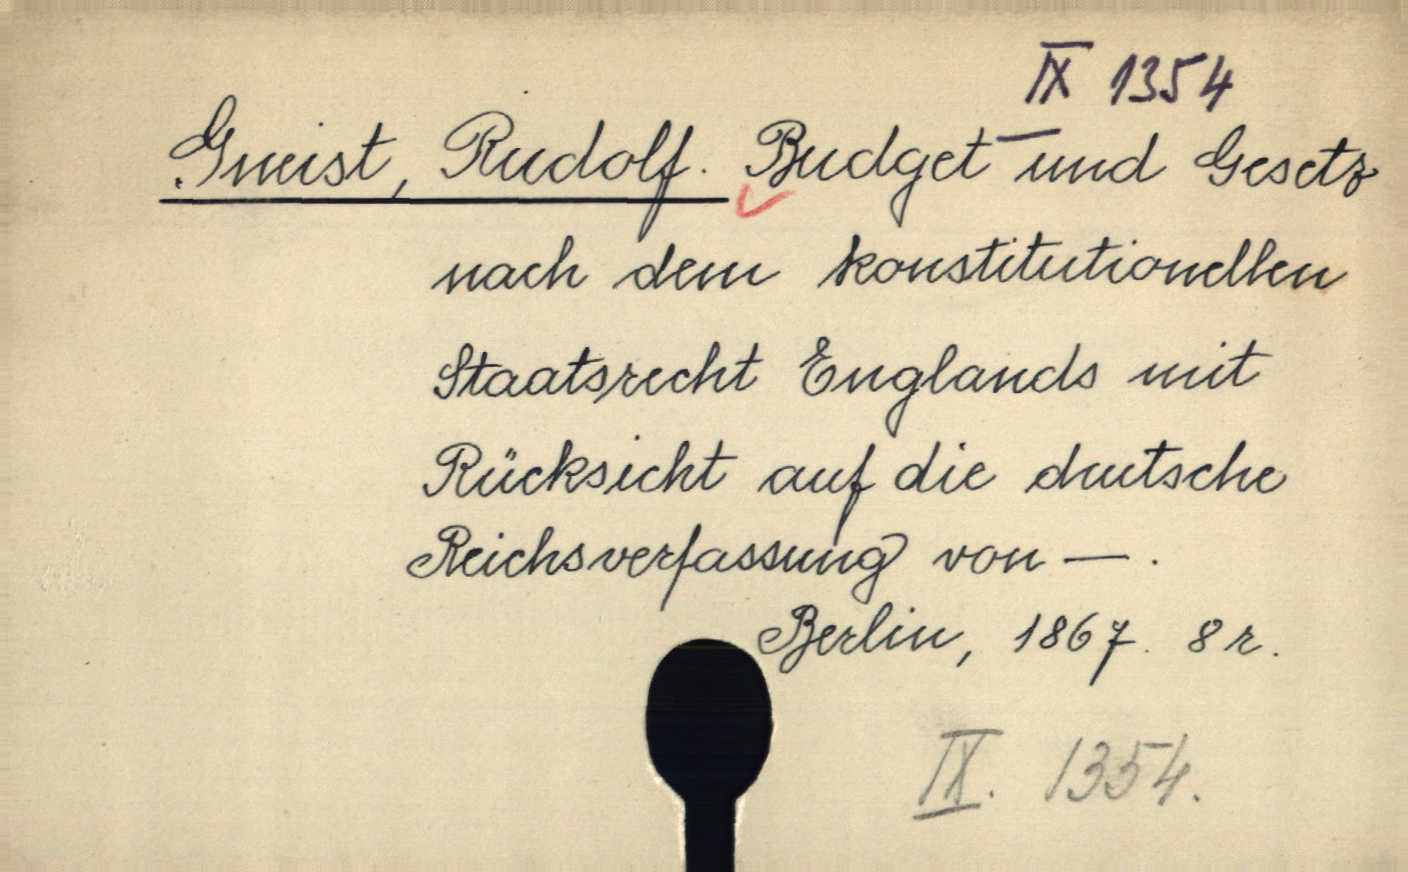 IX 1354
Gneist, Rudolf. Budget und Gesetz
nach dem konstitutionellen
Staatsrecht Englands mit
Rücksicht auf die deutsche
Reichsverfassung von —.
Berlin, 1867. 8 r.
IX. 1354.